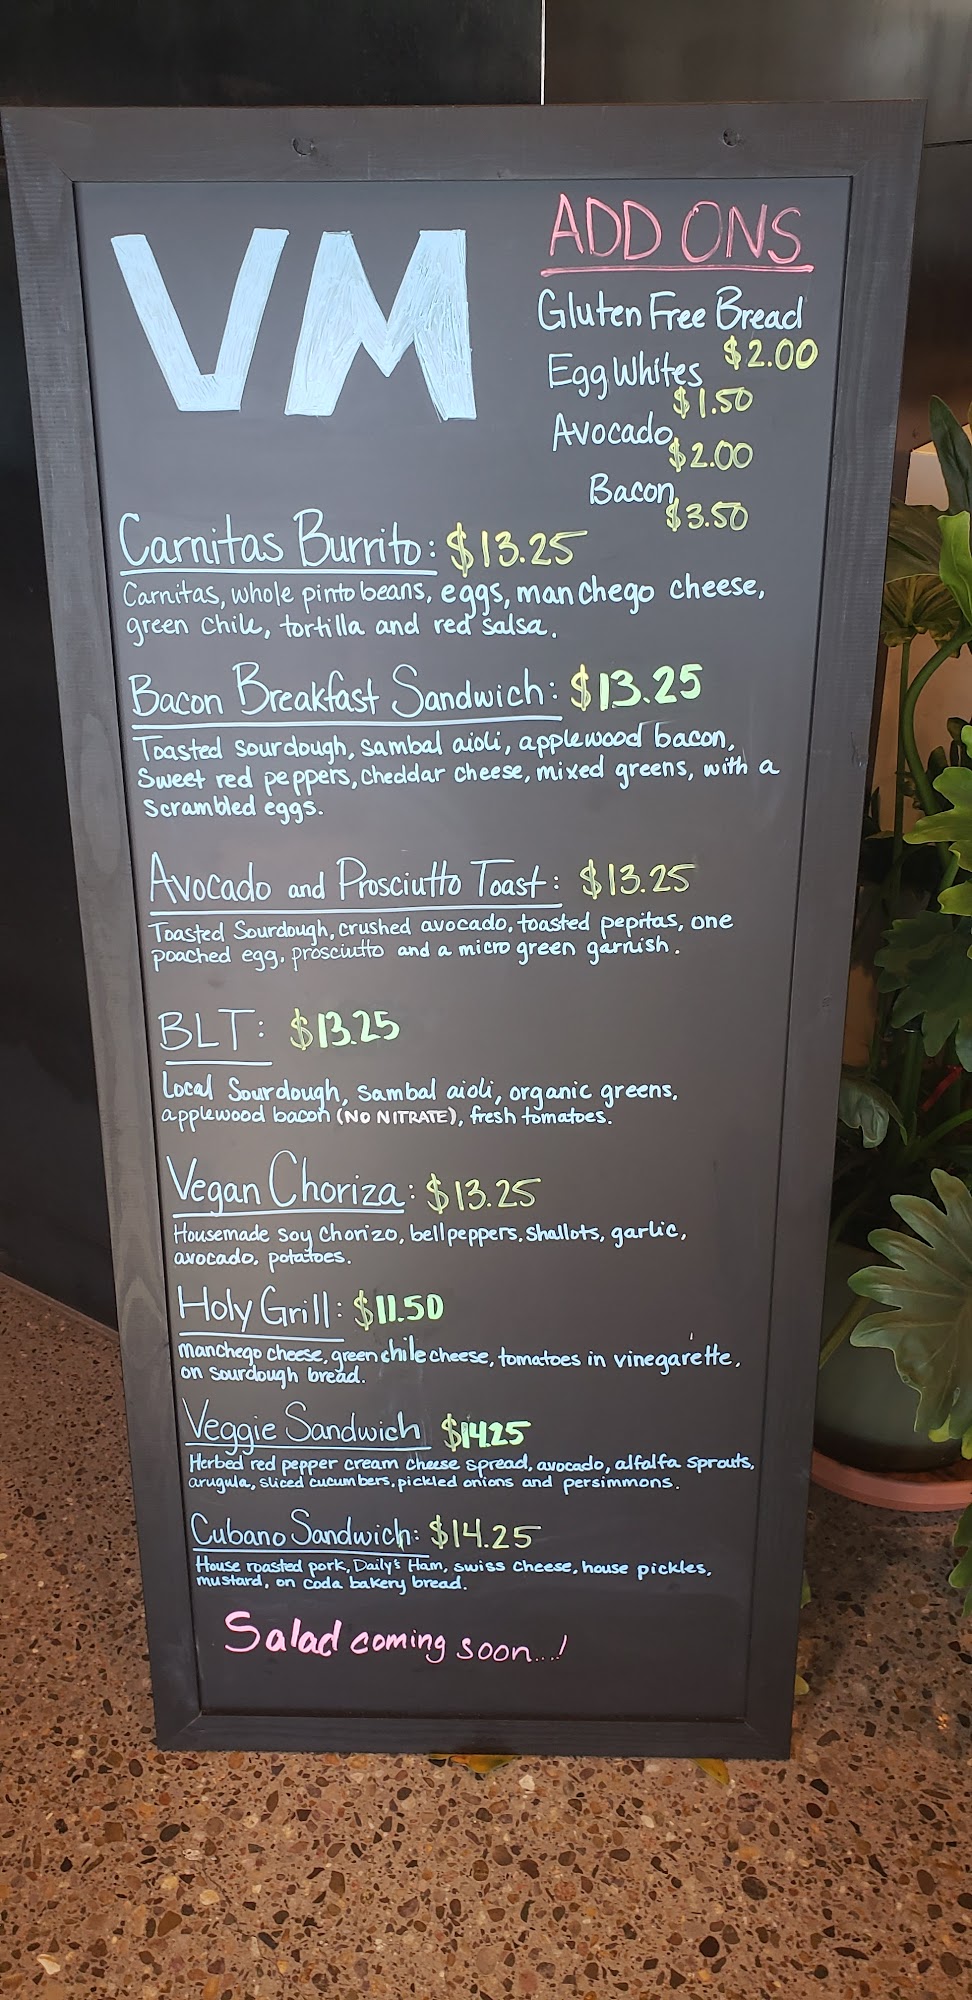 VM
ADD ONS
Gluten Free Bread
$2.00
Egg Whites
$1.50
Avocado
$2.00
Bacon
$3.50
Carnitas Burrito: $13.25
Carnitas, whole pinto beans, eggs, manchego cheese,
green chile, tortilla and red salsa.
Bacon Breakfast Sandwich: $13.25
Toasted sourdough, sambal aioli, applewood bacon,
Sweet red peppers, cheddar cheese, mixed greens, with a
Scrambled eggs.
Avocado and Prosciutto Toast: $13.25
Toasted Sourdough, crushed avocado, toasted pepitas, one
poached egg, prosciutto and a micro green garnish.
BLT: $13.25
Local Sourdough, sambal aioli, organic greens,
applewood bacon (NO NITRATE), fresh tomatoes.
Vegan Choriza: $13.25
Housemade soy chorizo, bell peppers, shallots, garlic,
avocado, potatoes.
Holy Grill: $11.50
manchego cheese, green chile cheese, tomatoes in vinegarette,
on sourdough bread.
Veggie Sandwich $14.25
Herbed red pepper cream cheese spread, avocado, alfalfa sprouts,
arugula, sliced cucumbers, pickled onions and persimmons.
Cubano Sandwich: $14.25
House roasted pork, Daily's Ham, swiss cheese, house pickles,
mustard, on coda bakery bread.
Salad coming soon...!